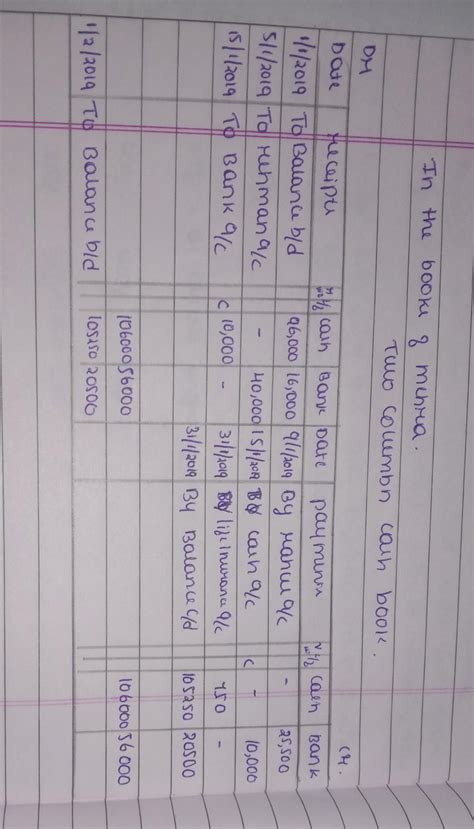 In the books of Mehra.
Two column cash book.
DR CR.
Date receipts V/F cash Bank Date payments V/F cash Bank
1/1/2019 To Balance b/d 96,000 16,000 9/1/2019 By a/c - 25,500
5/1/2019 To rehman a/c - 40,000 15/1/2019 By cash a/c C - 10,000
15/1/2019 To Bank a/c C 10,000 - 31/1/2019 By life insurance a/c 750 -
31/1/2019 By Balance c/d 105250 20500
106000 56000 106000 56000
1/2/2019 To Balance b/d 105250 20500